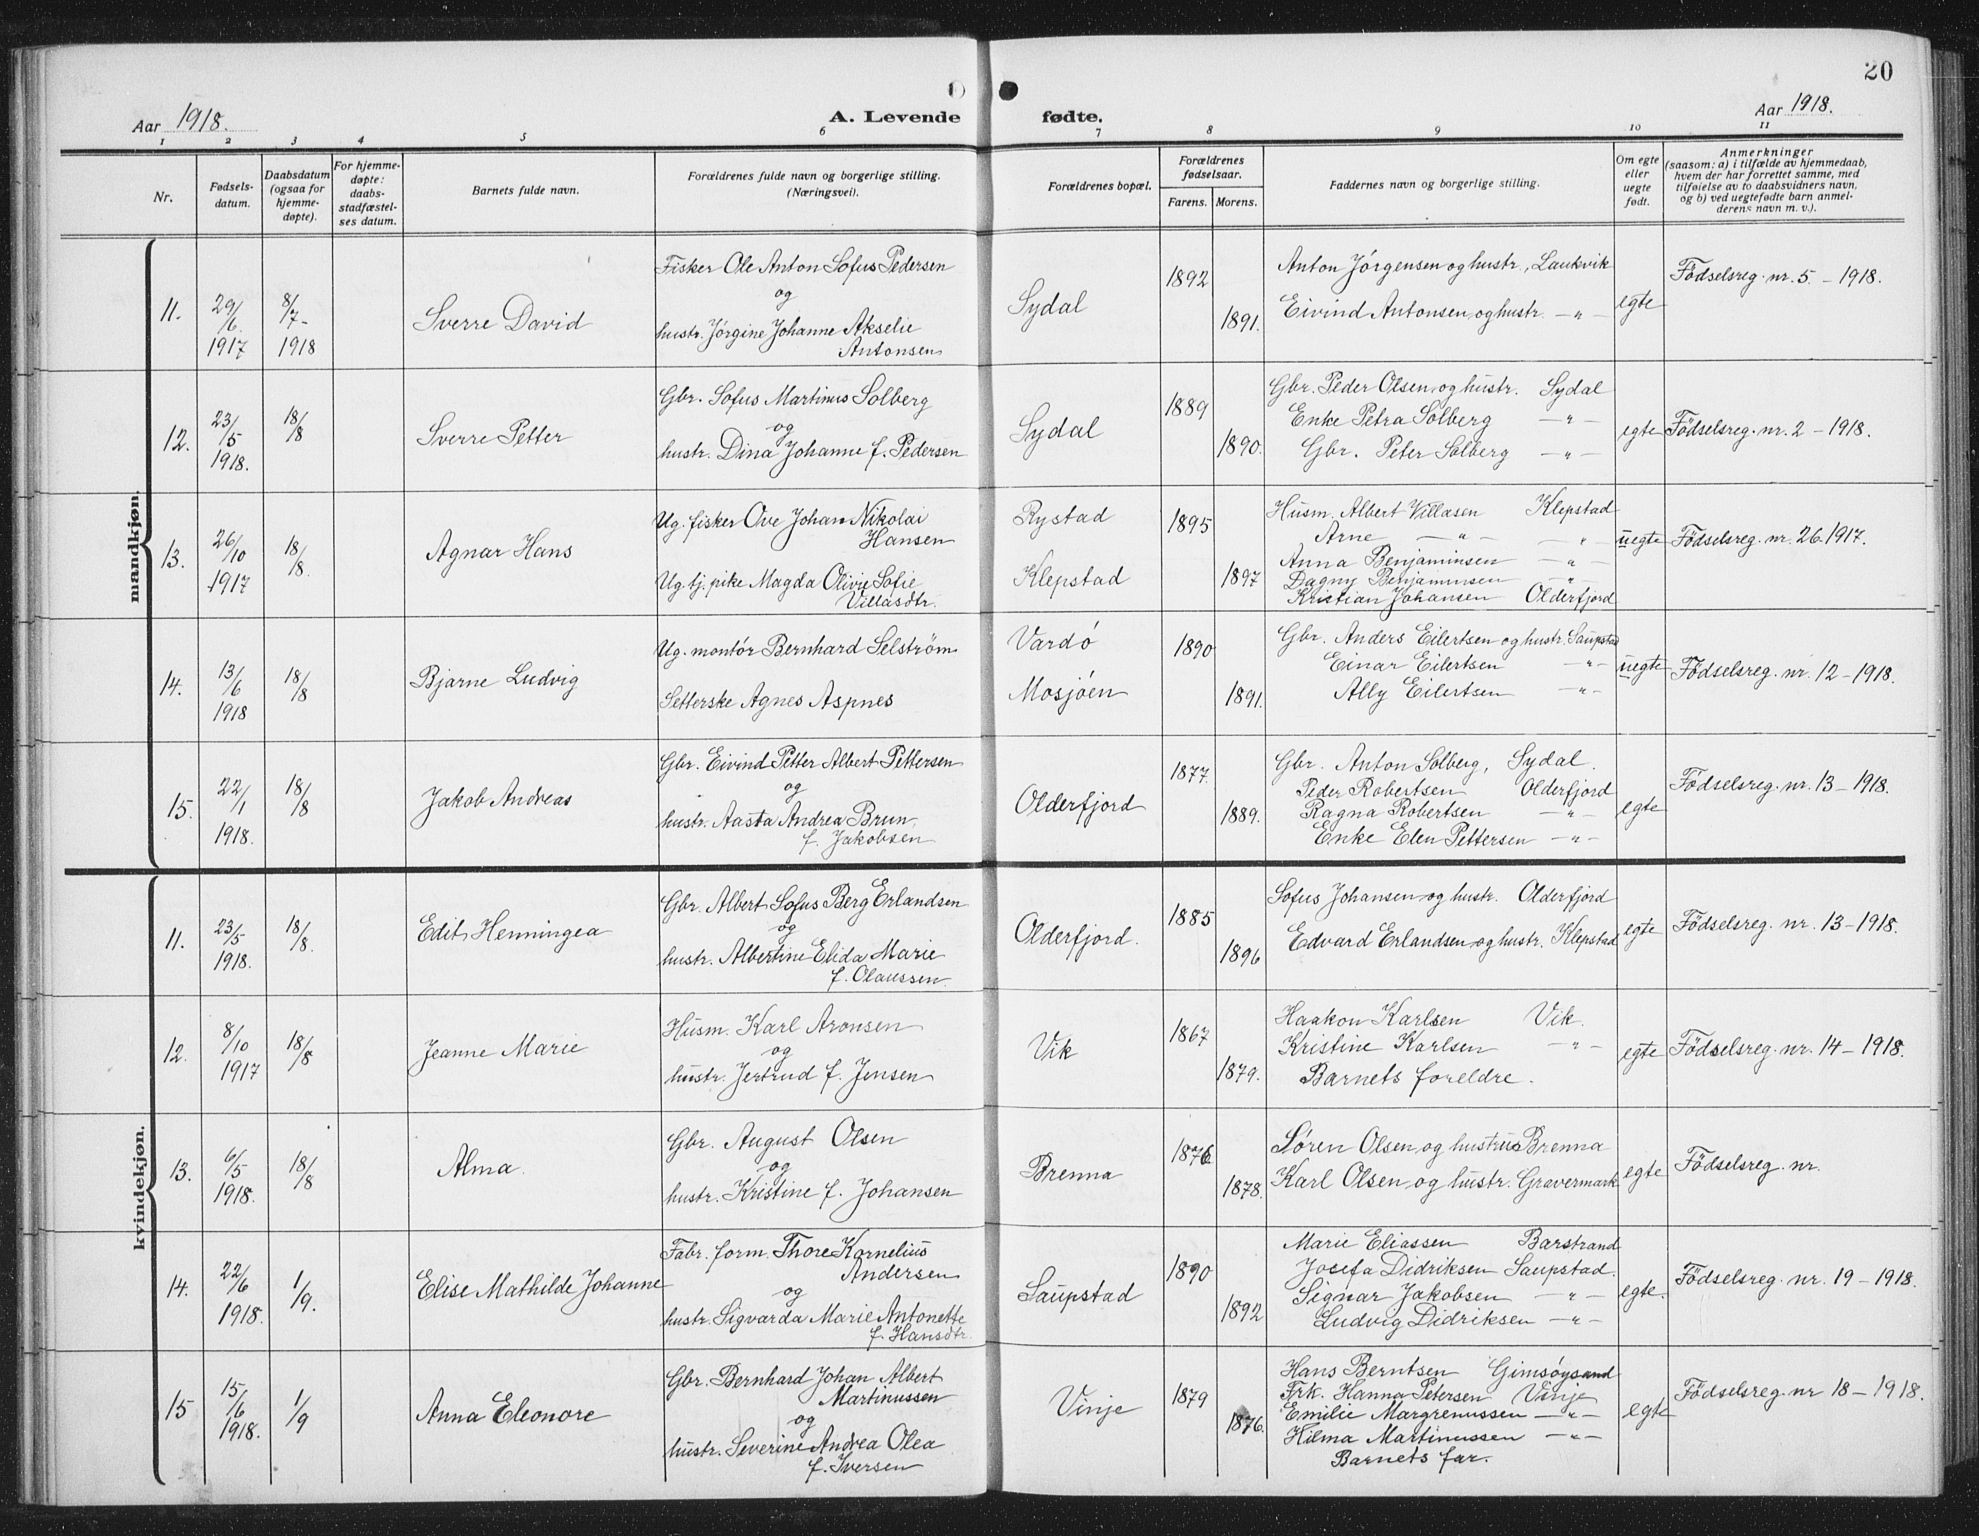 20
Aar 1918. A. Levende fødte. Aar 1918.
1 2 3 4 5 6 7 8 9 10 11
Nr.
Fødsels-
datum.
Daabsdatum
(ogsaa for
hjemme-
døpte).
For hjemme-
døpte:
daabs-
stadfæstel-
ses datum.
Barnets fulde navn.
Forældrenes fulde navn og borgerlige stilling.
(Næringsvei).
Forældrenes bopæl.
Forældrenes
fødselsaar.
Farens. Morens.
Faddernes navn og borgerlige stilling.
Om egte
eller
uegte
født.
Anmerkninger
(saasom: a) i tilfælde av hjemmedaab,
hvem der har forrettet samme, med
tilføielse av to daabsvidners navn,
og b) ved uegtefødte barn anmel-
derens navn m. v.).
mandkjøn.
11.
29/6.
1917
8/7-
1918
Sverre David
Fisker Ole Anton Sofus Pedersen
og
hustr. Jørgine Johanne Akselie
Antonsen
Sydal
1892
1891.
Anton Jørgensen og hustr., Laukvik
Eivind Antonsen og hustr. -"-
egte
Fødselsreg. nr. 5 - 1918.
12.
23/5
1918.
18/8
Sverre Petter
Gbr. Sofus Martinus Solberg
og
hustr. Dina Johanne f. Pedersen
Sydal
1889
1890.
Gbr. Peder Olsen og hustr. Sydal
Enke Petra Solberg -"-
Gbr. Peter Solberg -"-
egte
Fødselsreg. nr. 2 - 1918.
13.
26/10
1917
18/8.
Agnar Hans
Ug. fisker Ove Johan Nikolai
Hansen
Ug. tj. pike Magda Olivie Sofie
Villasdtr.
Rystad
Klepstad
1895
1897
Husm. Albert Villasen Klepstad
Arne -"- -"-
Anna Benjaminsen -"-
Dagny Benjaminsen -"-
Kristian Johansen Olderfjord
uegte
Fødselsreg. nr. 26. 1917.
14.
13/6
1918
18/8
Bjarne Ludvig
Ug. montør Bernhard Selström
Setterske Agnes Aspnes
Vardø
Mosjøen
1890
1891.
Gbr. Anders Eilertsen og hustr. Saupstad
Einar Eilertsen -"-
Ally Eilertsen -"-
uegte
Fødselsreg. nr. 12 - 1918.
15.
22/1
1918.
18/8
Jakob Andreas
Gbr. Eivind Petter Albert Pettersen
og
hustr. Aasta Andrea Brun
f. Jakobsen
Olderfjord
1877.
1889.
Gbr. Anton Solberg, Sydal.
Peder Robertsen Olderfjord
Ragna Robertsen -"-
Enke Elen Pettersen -"-
egte
Fødselsreg. nr. 13 - 1918.
kvindekjøn.
11.
23/5
1918.
18/8.
Edit Henningea
Gbr. Albert Sofus Berg Erlandsen
og
hustr. Albertine Elida Marie
f. Olaussen
Olderfjord.
1885
1896
Sofus Johansen og hustr. Olderfjord
Edvard Erlandsen og hustr. Klepstad
egte
Fødselsreg. nr. 13 - 1918.
12.
8/10
1917
18/8
Jeanne Marie
Husm. Karl Aronsen
og
hustr. Jertrud f. Jensen
Vik
1867
1879.
Haakon Karlsen Vik.
Kristine Karlsen -"-
Barnets foreldre.
egte
Fødselsreg. nr. 14 - 1918.
13.
6/5
1918.
18/8
Alma.
Gbr. August Olsen
og
hustr. Kristine f. Johansen
Brenna
1876
1878.
Søren Olsen og hustru Brenna
Karl Olsen og hustr. Gravermark
egte
Fødselsreg. nr.
14.
22/6
1918.
1/9.
Elise Mathilde Johanne
Fabr. form. Thore Kornelius
Andersen
og
hustr. Sigvarda Marie Antonette
f. Hansdtr.
Saupstad
1890
1892
Marie Eliassen Barstrand
Josefa Didriksen Saupstad.
Signar Jakobsen -"-
Ludvig Didriksen -"-
egte.
Fødselsreg. nr. 19 - 1918.
15
15/6
1918.
1/9
Anna Eleonore
Gbr. Bernhard Johan Albert
Martinussen
og
hustr. Severine Andrea Olea
f. Iversen
Vinje
1879
1876.
Hans Berntsen Gimsøysand
Frk. Hanna Petersen Vinje
Emilie Margrenussen -"-
Hilma Martinussen -"-
Barnets far.
egte
Fødselsreg. nr 18 - 1918.